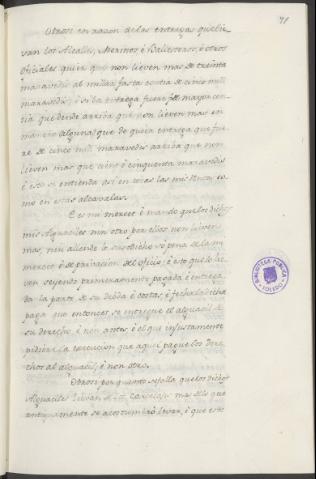 71
Otrosi en raçon de las entregas que lie-
van los Alcalls, Merinos, é Ballesteros, é otros
oficiales quier que non lieven mas de treinta
maravedis al millar fasta contia de cinco mill
maravedis; é si la entrega fuere de mayor con-
tia que dende arriba que non lieven mas en
manera alguna; que de quier entrega que fue-
re de cinco mill maravedis arriba que non
lieven mas que cient é cinquenta maravedis
é esto se entienda asi en todas las mis Rentas, co-
mo en estas alcavalas.
E es mi merced é mando que los dichos
mis Alguaciles nin otro por ellos non lieven
mas, nin allende lo susodicho so pena de la mi
merced é de privacion del oficio; é esto que lo lie-
ven seyendo primeramente pagada é entrega-
da la parte de su debda é costas; é fecha la dicha
paga que entonces se entregue el alguacil de
su derecho, é non antes, é el que injustamente
pidiere la execucion que aquel pague los dere-
chos al alguacil, é non otro.
Otrosi por quanto se falla que los dichos
Alguaciles llevan de carcelaje mas de lo que
antiguamente se acostumbró levar, é que esto
BIBLIOTECA PUBLICA
TOLEDO